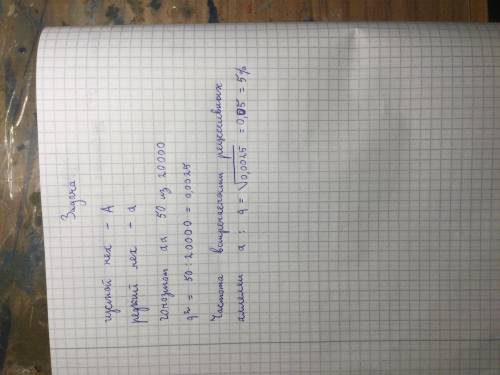 Задача
густой мех - А
редкий мех - а
гомозигот аа 50 из 20000
q² = 50 : 20000 = 0,0025
Частота встречаемости рецессивных
аллели а : q = √0,0025 = 0,05 = 5%